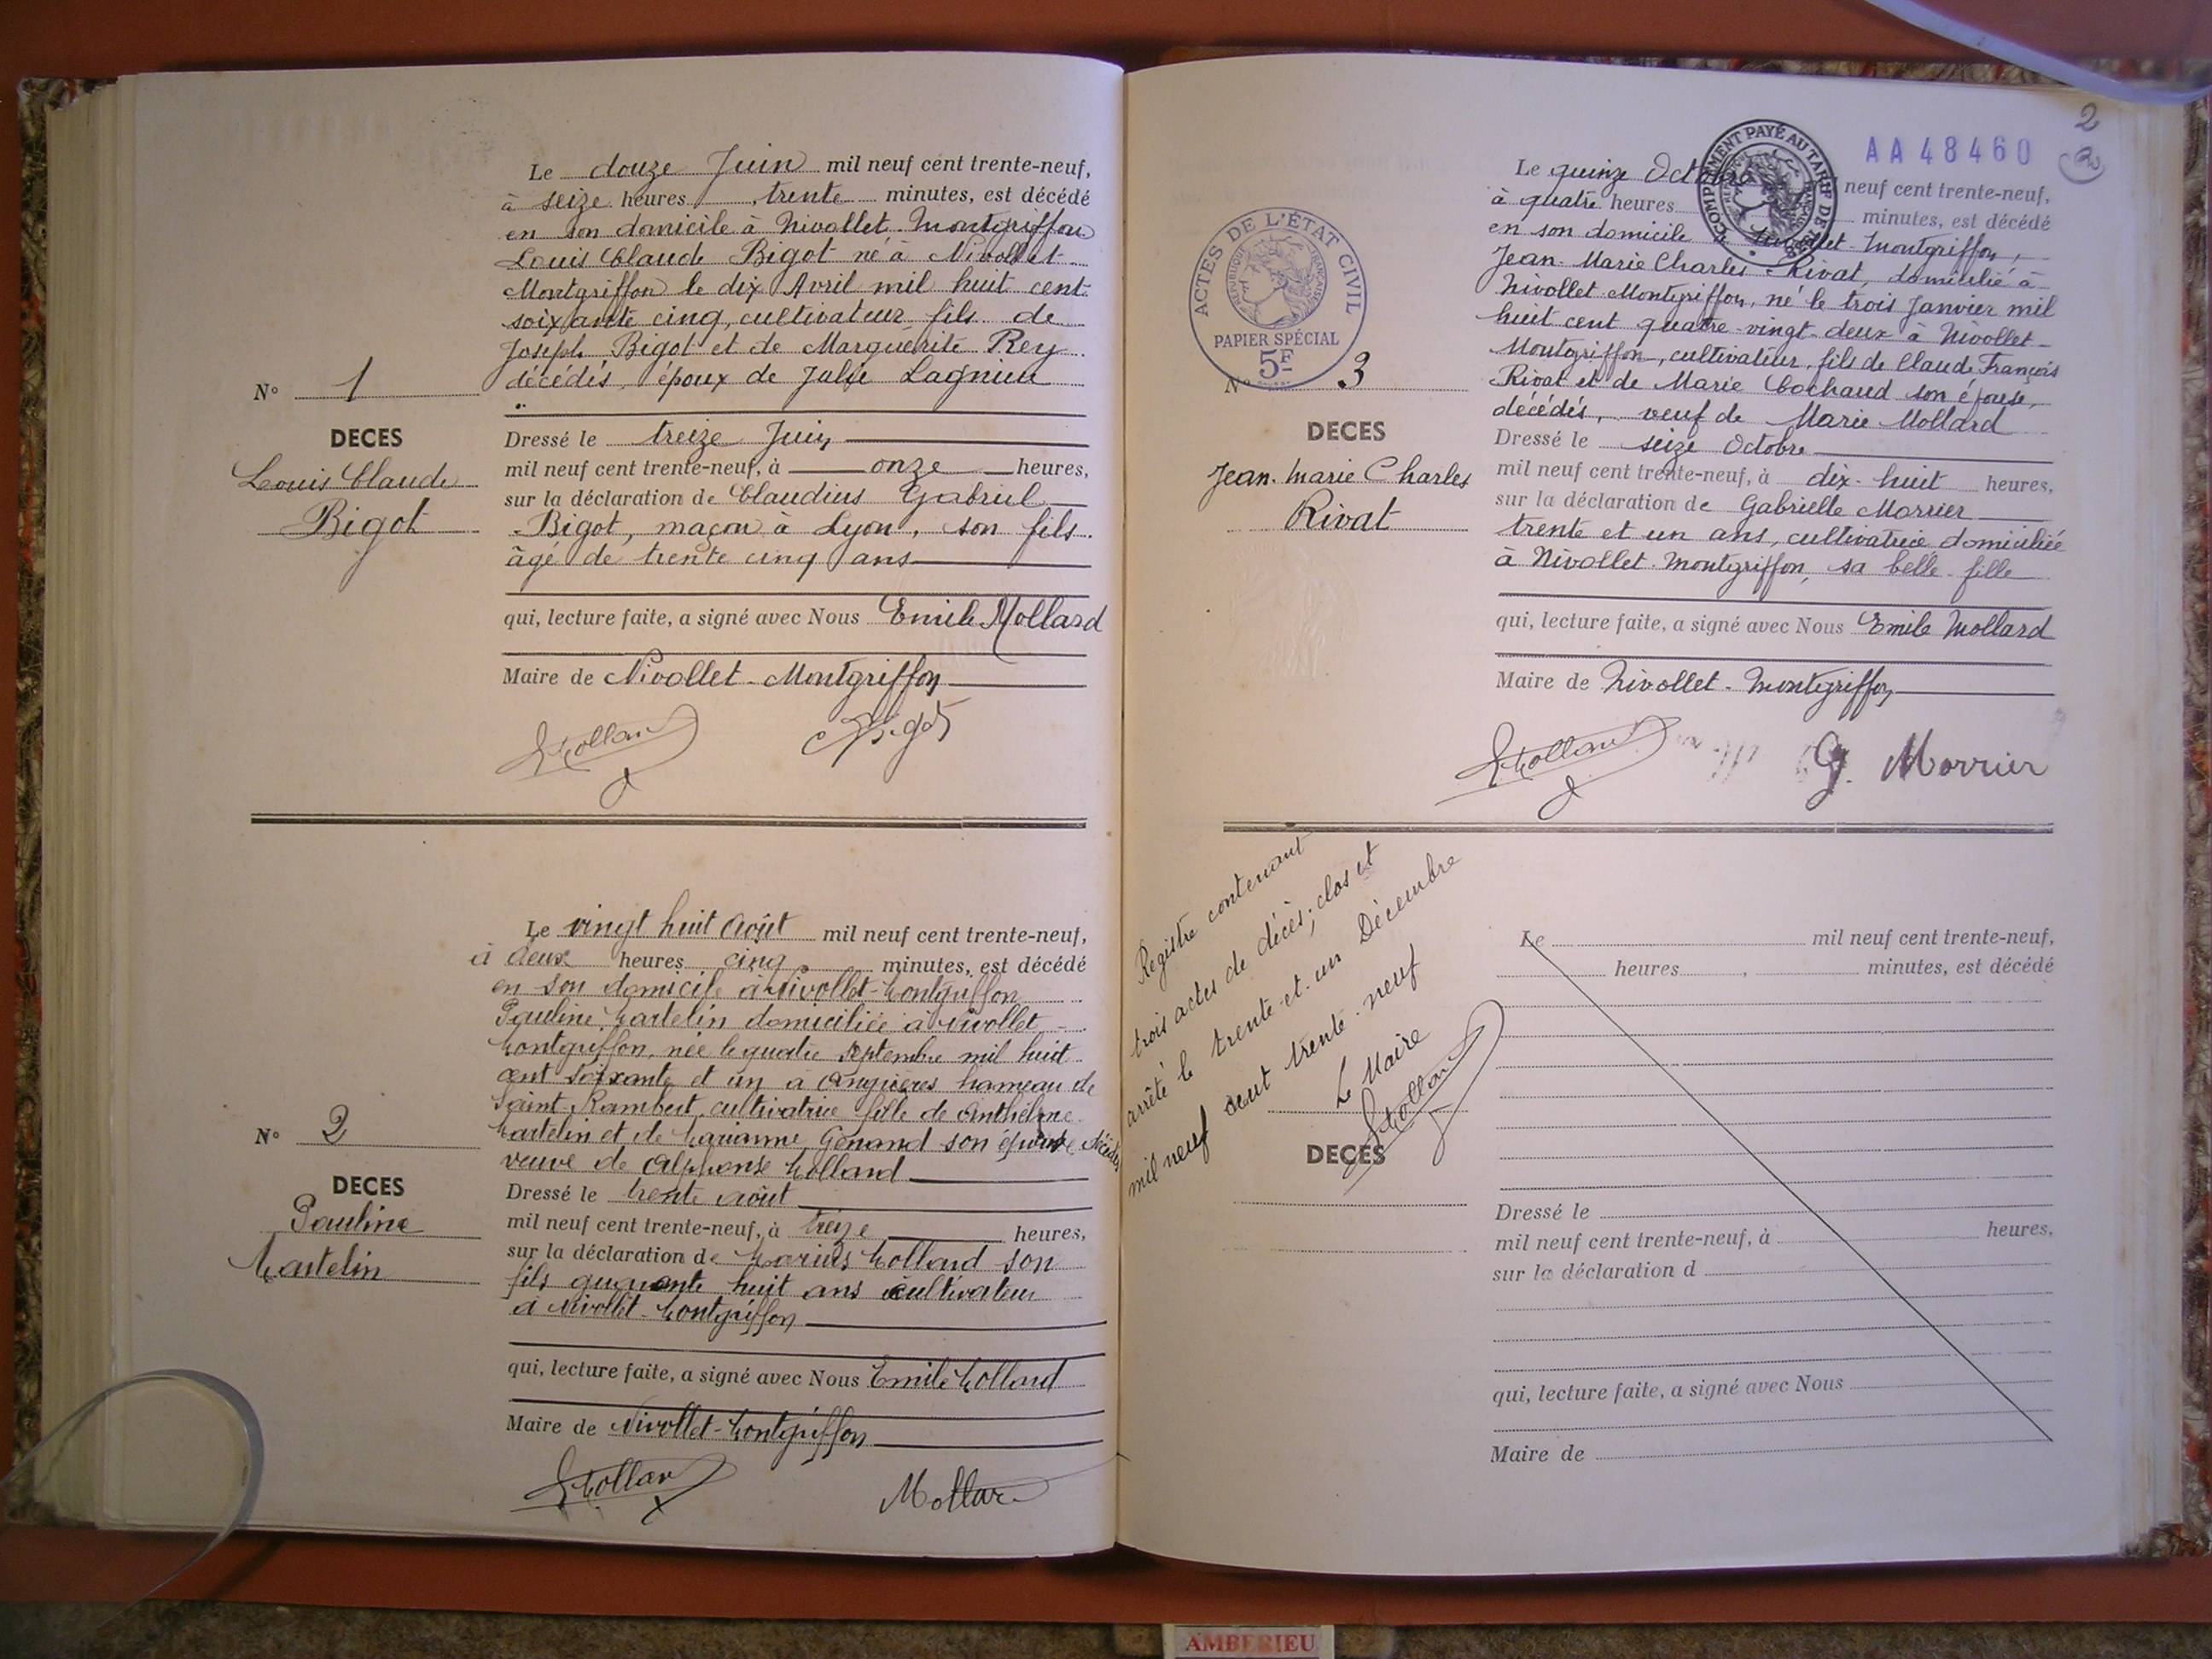 Le douze Juin mil neuf cent trente-neuf,
à seize heures trente minutes, est décédé
en son domicile à Nivollet-Montgriffon
Louis Claude Bigot né à Nivollet-
Montgriffon le dix Avril mil huit cent
soixante cinq, cultivateur fils de
Joseph Bigot et de Marguerite Rey
décédés, époux de Julie Lagnieu
N° 1
DECES
Louis Claude
Bigot
Dressé le treize Juin
mil neuf cent trente-neuf, à onze heures,
sur la déclaration de Claudius Gabriel
Bigot, maçon à Lyon, son fils
âgé de trente cinq ans
qui, lecture faite, a signé avec Nous Emile Mollard
Maire de Nivollet-Montgriffon
EMollard CBigot
Le vingt huit Août mil neuf cent trente-neuf,
à deux heures cinq minutes, est décédé
en son domicile à Nivollet-Montgriffon
Pauline Martelin domiciliée à Nivollet-
Montgriffon, née le quatre Septembre mil huit
cent soixante et un à Angrières hameau de
Saint Rambert, cultivatrice fille de Anthelme
Martelin et de Marianne Genand son épouse décédés
veuve de Alphonse Mollard
N° 2
DECES
Pauline
Martelin
Dressé le trente Août
mil neuf cent trente-neuf, à treize heures,
sur la déclaration de Marius Mollard son
fils quarante huit ans cultivateur
à Nivollet-Montgriffon
qui, lecture faite, a signé avec Nous Emile Mollard
Maire de Nivollet-Montgriffon
EMollard Mollard
2
AA48460
COMPLÉMENT PAYÉ AU TARIF DE
Le quinze Octobre neuf cent trente-neuf,
à quatre heures minutes, est décédé
en son domicile à Nivollet-Montgriffon,
Jean-Marie Charles Rivat, domicilié à
Nivollet-Montgriffon, né le trois Janvier mil
huit cent quatre-vingt-deux à Nivollet-
Montgriffon, cultivateur, fils de Claude François
Rivat et de Marie Cochaud son épouse,
décédés, veuf de Marie Mollard
ACTES DE L'ÉTAT CIVIL
RÉPUBLIQUE FRANÇAISE
PAPIER SPÉCIAL
5F
N° 3
DECES
Jean-Marie Charles
Rivat
Dressé le seize Octobre
mil neuf cent trente-neuf, à dix-huit heures,
sur la déclaration de Gabrielle Morrier
trente et un ans, cultivatrice domiciliée
à Nivollet-Montgriffon, sa belle-fille
qui, lecture faite, a signé avec Nous Emile Mollard
Maire de Nivollet-Montgriffon
EMollard G. Morrier
Registre contenant
trois actes de décès; clos et
arrêté le trente-et-un Décembre
mil neuf cent trente-neuf
Le Maire
EMollard
DECES
Le mil neuf cent trente-neuf,
heures, minutes, est décédé
Dressé le
mil neuf cent trente-neuf, à heures,
sur la déclaration d
qui, lecture faite, a signé avec Nous
Maire de
AMBERIEU